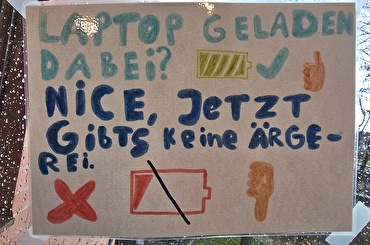 LAPTOP GELADEN
DABEI?
NICE, JETZT
GiBTS KEiNE ÄRGE-
REi.